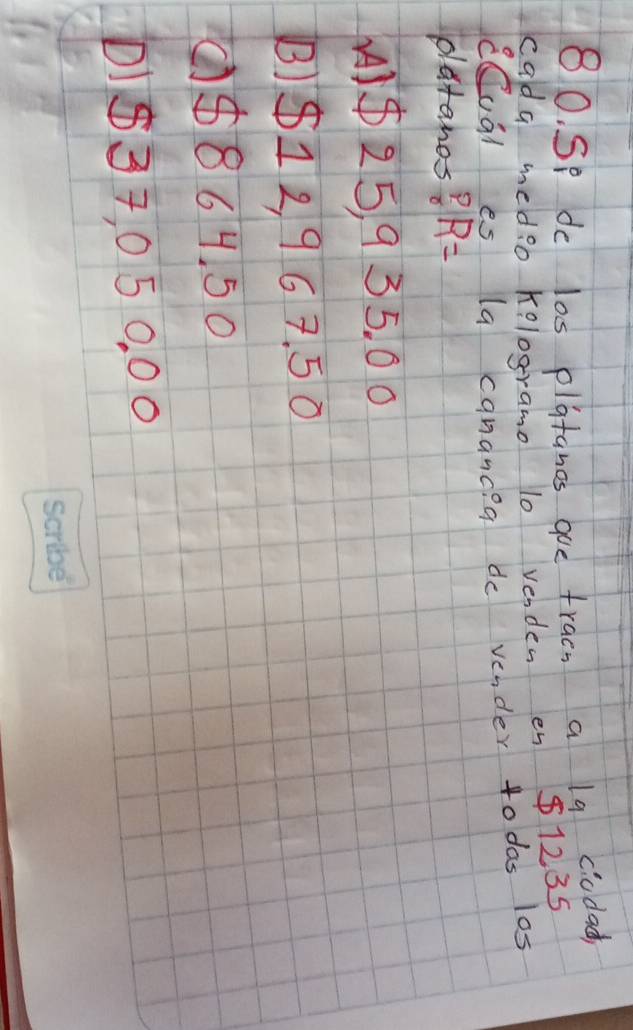 80. Si de los plátanos que traen a la ciudad,
cada medio kilogramo lo venden en $12.35
¿Cuál es la canancia de vender todas los
plátanos? R=
A) $25,935.00
B) $12,967.50
C) $864.50
D) $37,050.00
Scribe